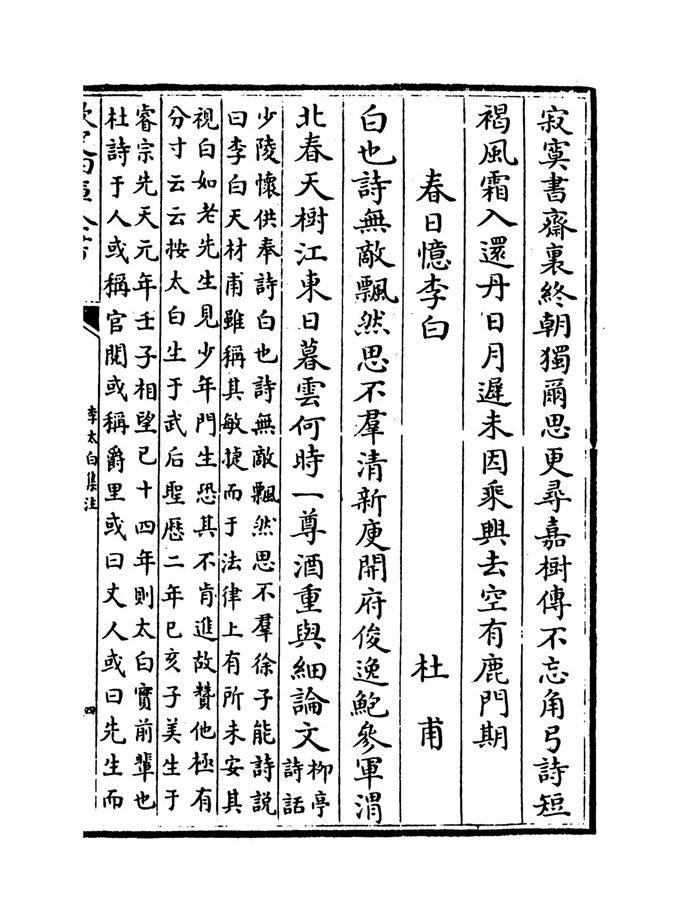 寂寞書齋裏終朝獨爾思更尋嘉樹傳不忘角弓詩短
褐風霜入還丹日月遲未因乘興去空有鹿門期
春日憶李白
杜甫
白也詩無敵飄然思不羣清新庾開府俊逸鮑參軍渭
北春天樹江東日暮雲何時一尊酒重與細論文
柳亭
詩話
少陵懷供奉詩白也詩無敵飄然思不羣徐子能詩説
曰李白天材甫雖稱其敏捷而于法律上有所未安其
視白如老先生見少年門生恐其不肯進故贊他極有
分寸云云按太白生于武后聖厯二年已亥子美生于
睿宗先天元年壬子相望已十四年則太白實前輩也
杜詩于人或稱官閥或稱爵里或曰丈人或曰先生而
李太白集注
四